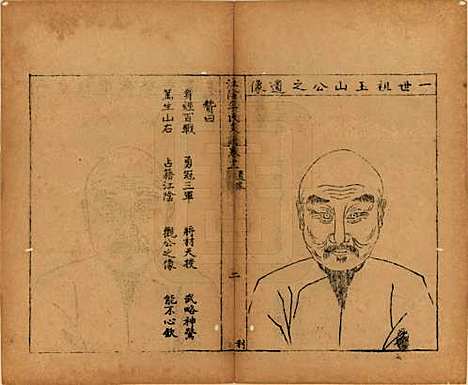 一世祖玉山公之遺像
江陰氏卷
二
贊曰
身經百戰 勇冠三軍 將材天授 武略神驚
篤生山右 占籍江陰 觀公之像 能不心欽